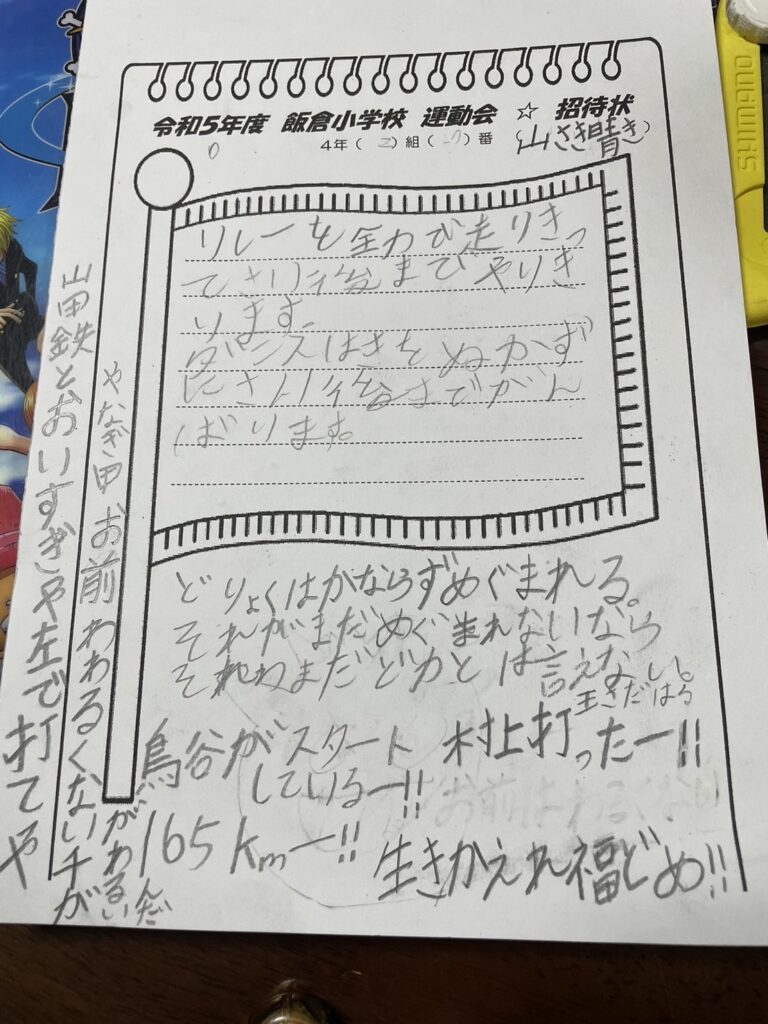 令和5年度 飯倉小学校 運動会 ☆ 招待状
4年（二）組（ ）番 (山さき晴き)
リレーを全力で走りきっ
てさい後までやりき
ります。
ダンスはきをぬかず
にさい後までがん
ばります。
どりょくはかならずめぐまれる。
それがまだめぐまれないなら
それわまだどカとは言えない。
王さだはる
鳥谷がスタート
しているー!!
村上打ったー!!
165kmー!!
生きかえれ福どめ!!
やなぎ田お前わわるくないチが
がわるい
んだ
山田鉄とおいすぎや左で打てや
SHIMANO